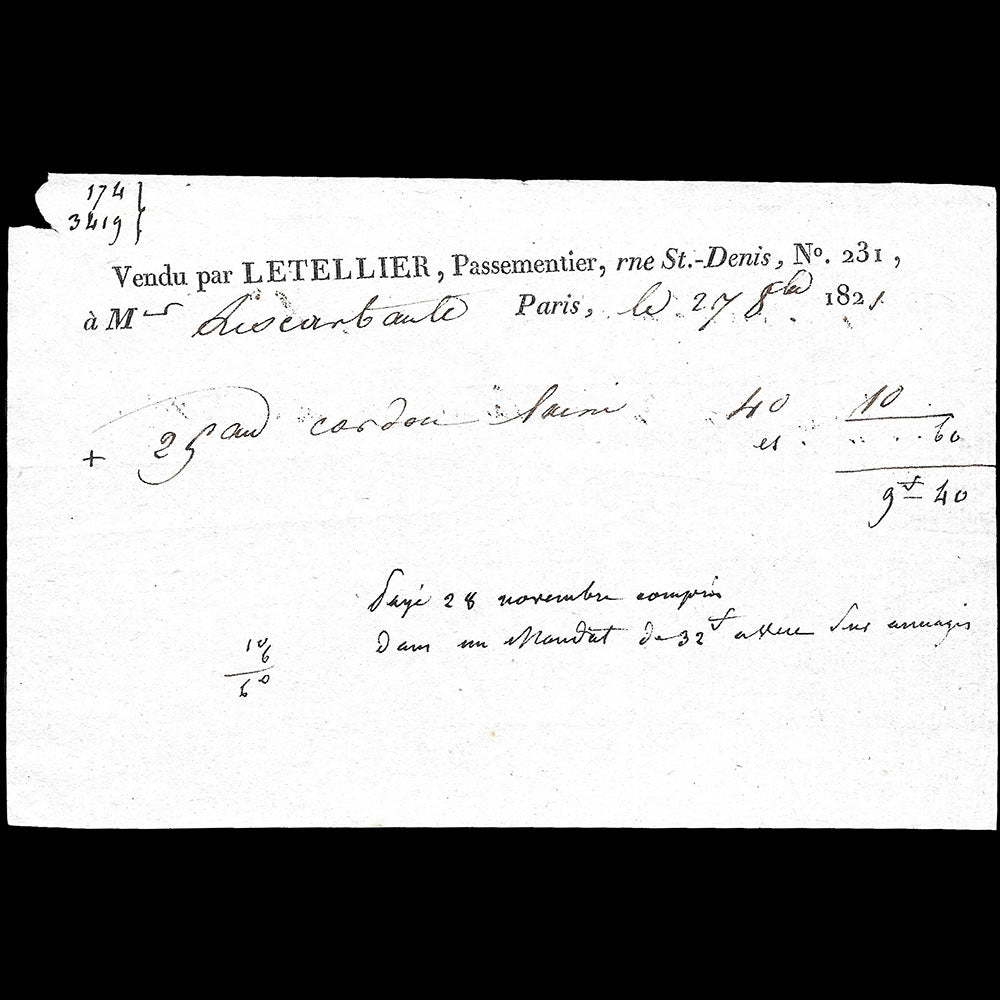 174
3419
Vendu par LETELLIER, Passementier, rne St.-Denis, No. 231,
à Mr Paris, le 27 8bre 1821
+ 25 au cordon 40 10
es . . . . 60
9f 40
Payé 28 novembre compris
Dans un Mandat de 32f Sur
10
6
60